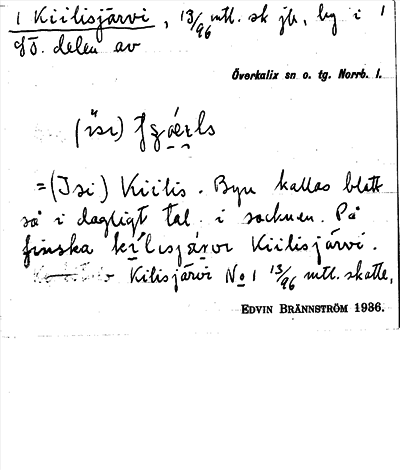 1 Kiilisjärvi, 13/96 mtl. sk jb, by i
sö. delen av
Överkalix sn o. tg. Norrb. l.
= (Isi) Kiilis. Byn kallas blott
så i dagligt tal i socknen. På
finska kilisjärvi Kiilisjärvi.
Kilisjärvi No 1 13/96 mtl. skatte,
EDVIN BRÄNNSTRÖM 1936.